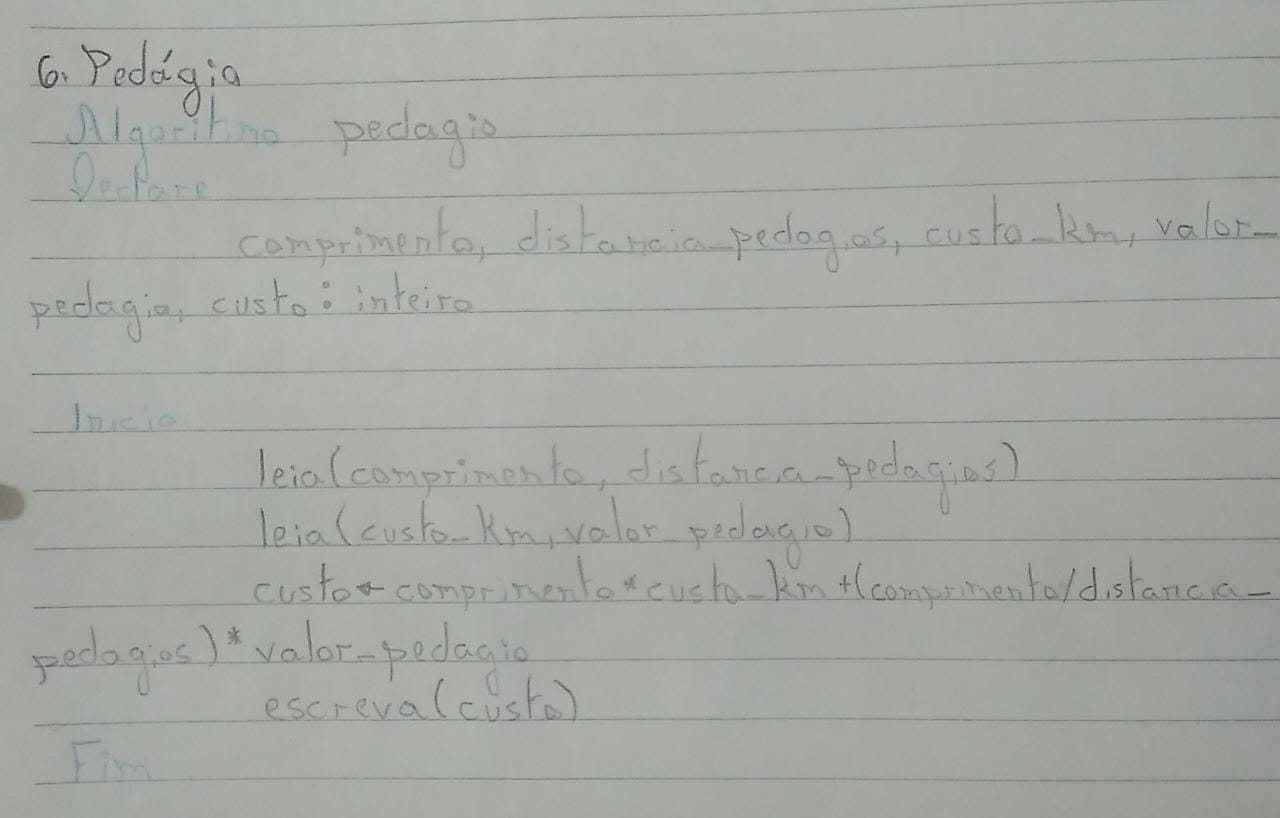 6. Pedágio
Algoritimo pedagio
Declare
comprimento, distancia_pedagios, custo_km, valor_
pedagio, custo: inteiro
Inicio
leia(comprimento, distancia_pedagios)
leia(custo_km, valor_pedagio)
custo ← comprimento * custo_km + (comprimento/distancia_
pedagios) * valor_pedagio
escreva(custo)
Fim